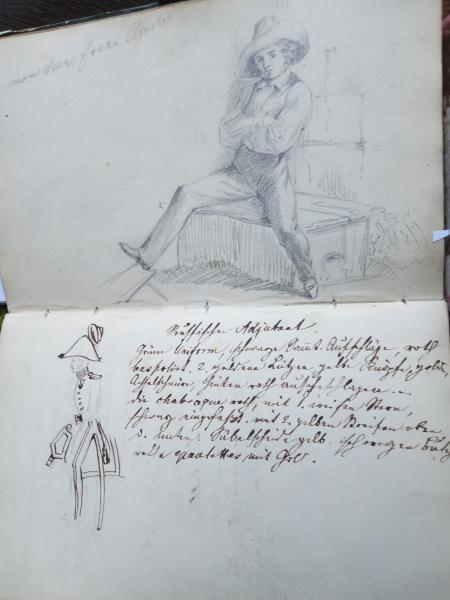 mon cher frere
Russischer Adjutant.
Grüne Uniform, schwarze Samt-Aufschläge, roth
2. goldene Litzen gelbe Knöpfe, goldne
Achselschnüre, hinten roth aufgeschlagen.
die chabraque roth, mit 1. weißen Stern,
schwarz eingefaßt. mit 2. gelben Streifen oben
u. unten. Säbelscheide gelb. schwarzen
epaulettes mit Gold.